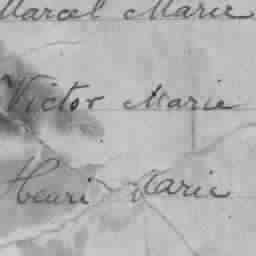 Marcel Marie
Victor Marie
Henri Marie